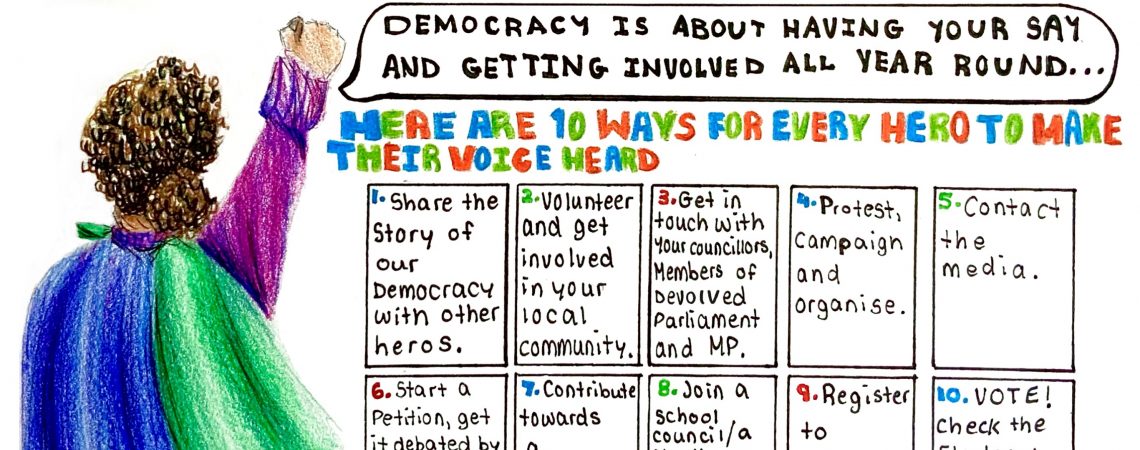 DEMOCRACY IS ABOUT HAVING YOUR SAY
AND GETTING INVOLVED ALL YEAR ROUND...
HERE ARE 10 WAYS FOR EVERY HERO TO MAKE
THEIR VOICE HEARD
1. Share the
Story of
our
Democracy
with other
heros.
2. Volunteer
and get
involved
in your
local
community.
3. Get in
touch with
your councillors,
Members of
Devolved
Parliament
and MP.
4. Protest,
Campaign
and
organise.
5. Contact
the
media.
6. Start a
Petition, get
it debated by
7. Contribute
towards
a
8. Join a
School
council/a
9. Register
to
10. VOTE!
check the